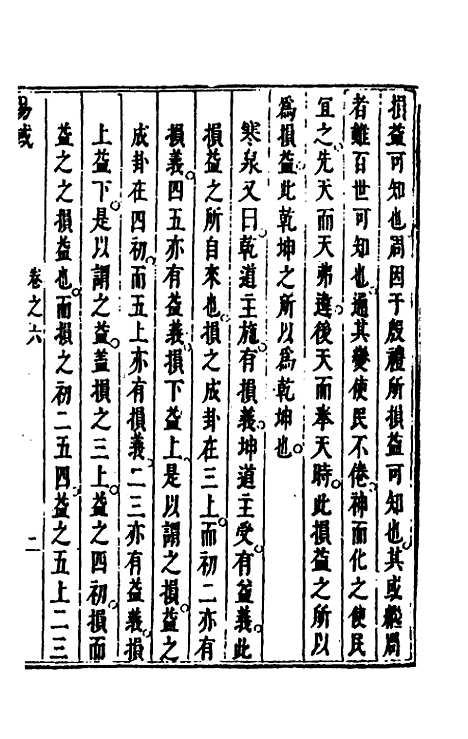 損益可知也周因于殷禮所損益可知也其或繼周
者雖百世可知也通其變使民不倦神而化之使民
宜之先天而天弗違後天而奉天時此損益之所以
爲損益此乾坤之所以爲乾坤也
寒泉又曰乾道主施有損義坤道主受有益義此
損益之所自來也損之成卦在三上而初二亦有
損義四五亦有益義損下益上是以謂之損益之
成卦在四初而五上亦有損義二三亦有益義損
上益下是以謂之益蓋損之三上益之四初損而
益之之損益也而損之初二五四益之五上二三
卷之六
二